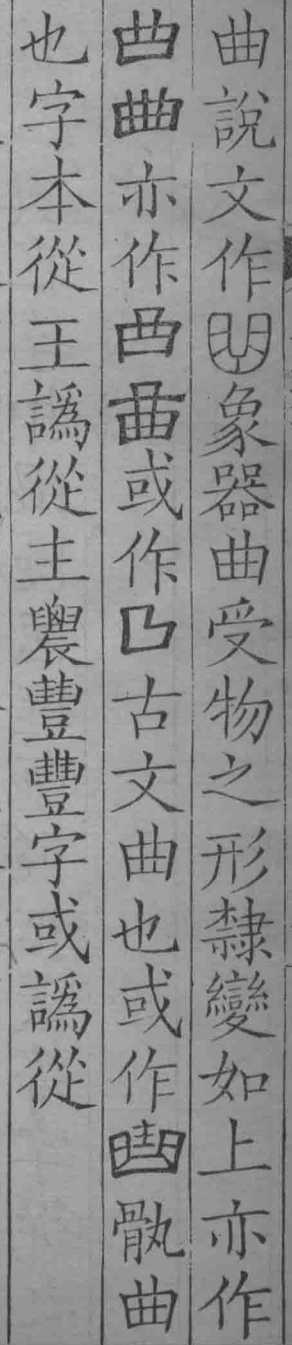 曲說文作象器曲受物之形隸變如上亦作
亦作或作古文曲也或作骫曲
也字本從王譌從主豐豐字或譌從